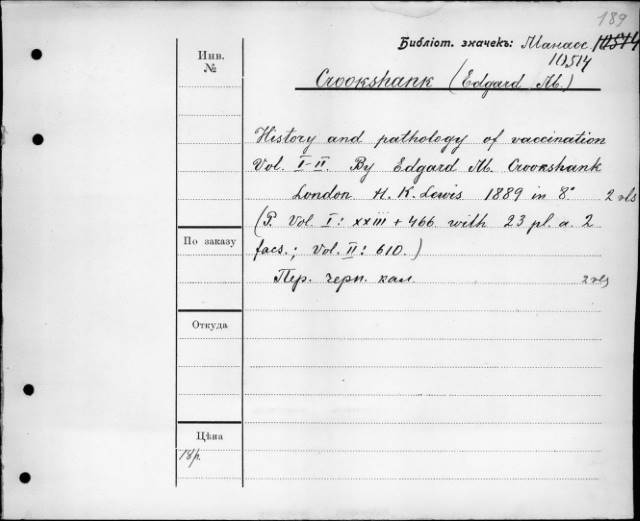 189
Библіот. значекъ: Манасс. 10514
10514
Инв.
№
Crookshank (Edgard M.)
History and pathology of vaccination
Vol. I-II. By Edgard M. Crookshank
London H. K. Lewis 1889 in 8° 2 vls
(P. Vol. I: xxiii + 466 with 23 pl. a. 2
facs.; Vol. II: 610.)
По заказу
Пер. черн. кал. 2 vls
Откуда
Цѣна
18р.